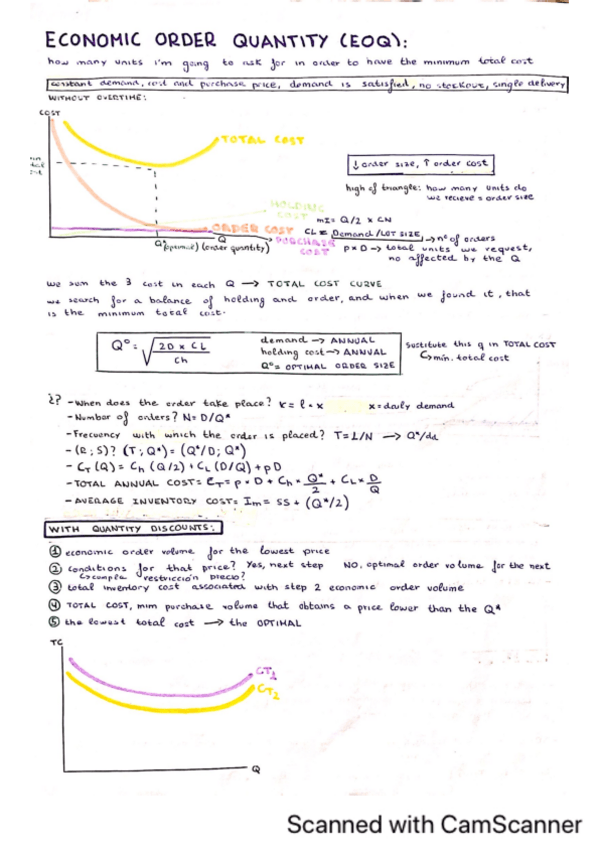 ECONOMIC ORDER QUANTITY (EOQ):
how many units i'm going to ask for in order to have the minimum total cost
constant demand, cost and purchase price, demand is satisfied, no stockout, single delivery
WITHOUT OVERTIME:
COST
TOTAL COST
↓ order size, ↑ order cost
high of triangle: how many units do
we recieve = order size
HOLDING
COST
mI = Q/2 x CN
ORDER COST
CL = Demand/LOT SIZE → nº of orders
Q
Q*(optimal) (order quantity)
PURCHASE
COST
p x D → total units we request,
no affected by the Q
we sum the 3 cost in each Q → TOTAL COST CURVE
we search for a balance of holding and order, and when we found it, that
is the minimum total cost.
Qº = √(2D x CL / Ch)
demand → ANNUAL
holding cost → ANNUAL
Qº = OPTIMAL ORDER SIZE
sustitute this q in TOTAL COST
↳ min. total cost
¿? - When does the order take place? r = l · x
x = daily demand
- Number of orders? N = D/Q*
- Frecuency with which the order is placed? T = 1/N → Q*/dd
- (R; S)? (T; Q*) = (Q*/D; Q*)
- CT (Q) = Ch (Q/2) + CL (D/Q) + pD
- TOTAL ANNUAL COST = CT = p x D + Ch x Q*/2 + CL x D/Q
- AVERAGE INVENTORY COST = Im = SS + (Q*/2)
WITH QUANTITY DISCOUNTS:
① economic order volume for the lowest price
② conditions for that price? Yes, next step NO, optimal order volume for the next
↳ cumple restricción precio?
③ total inventory cost associated with step 2 economic order volume
④ TOTAL COST, mim purchase volume that obtains a price lower than the Q*
⑤ the lowest total cost → the OPTIMAL
TC
CT1
CT2
Q
Scanned with CamScanner